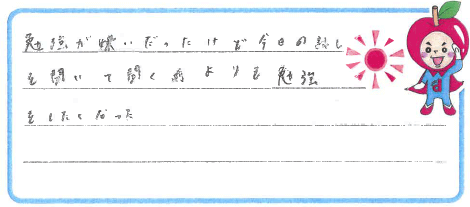 勉強が嫌いだったけど今日の話し
を聞いて聞く前よりも勉強
をしたくなった